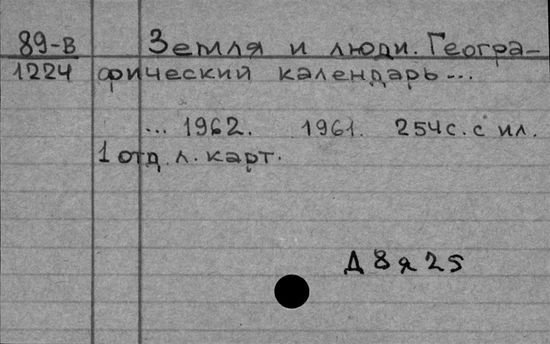 89-в Земля и люди. Геогра-
1224 фический календарь...
... 1962. 1961. 254с. с ил.
1 отд. л. карт.
Д8я25